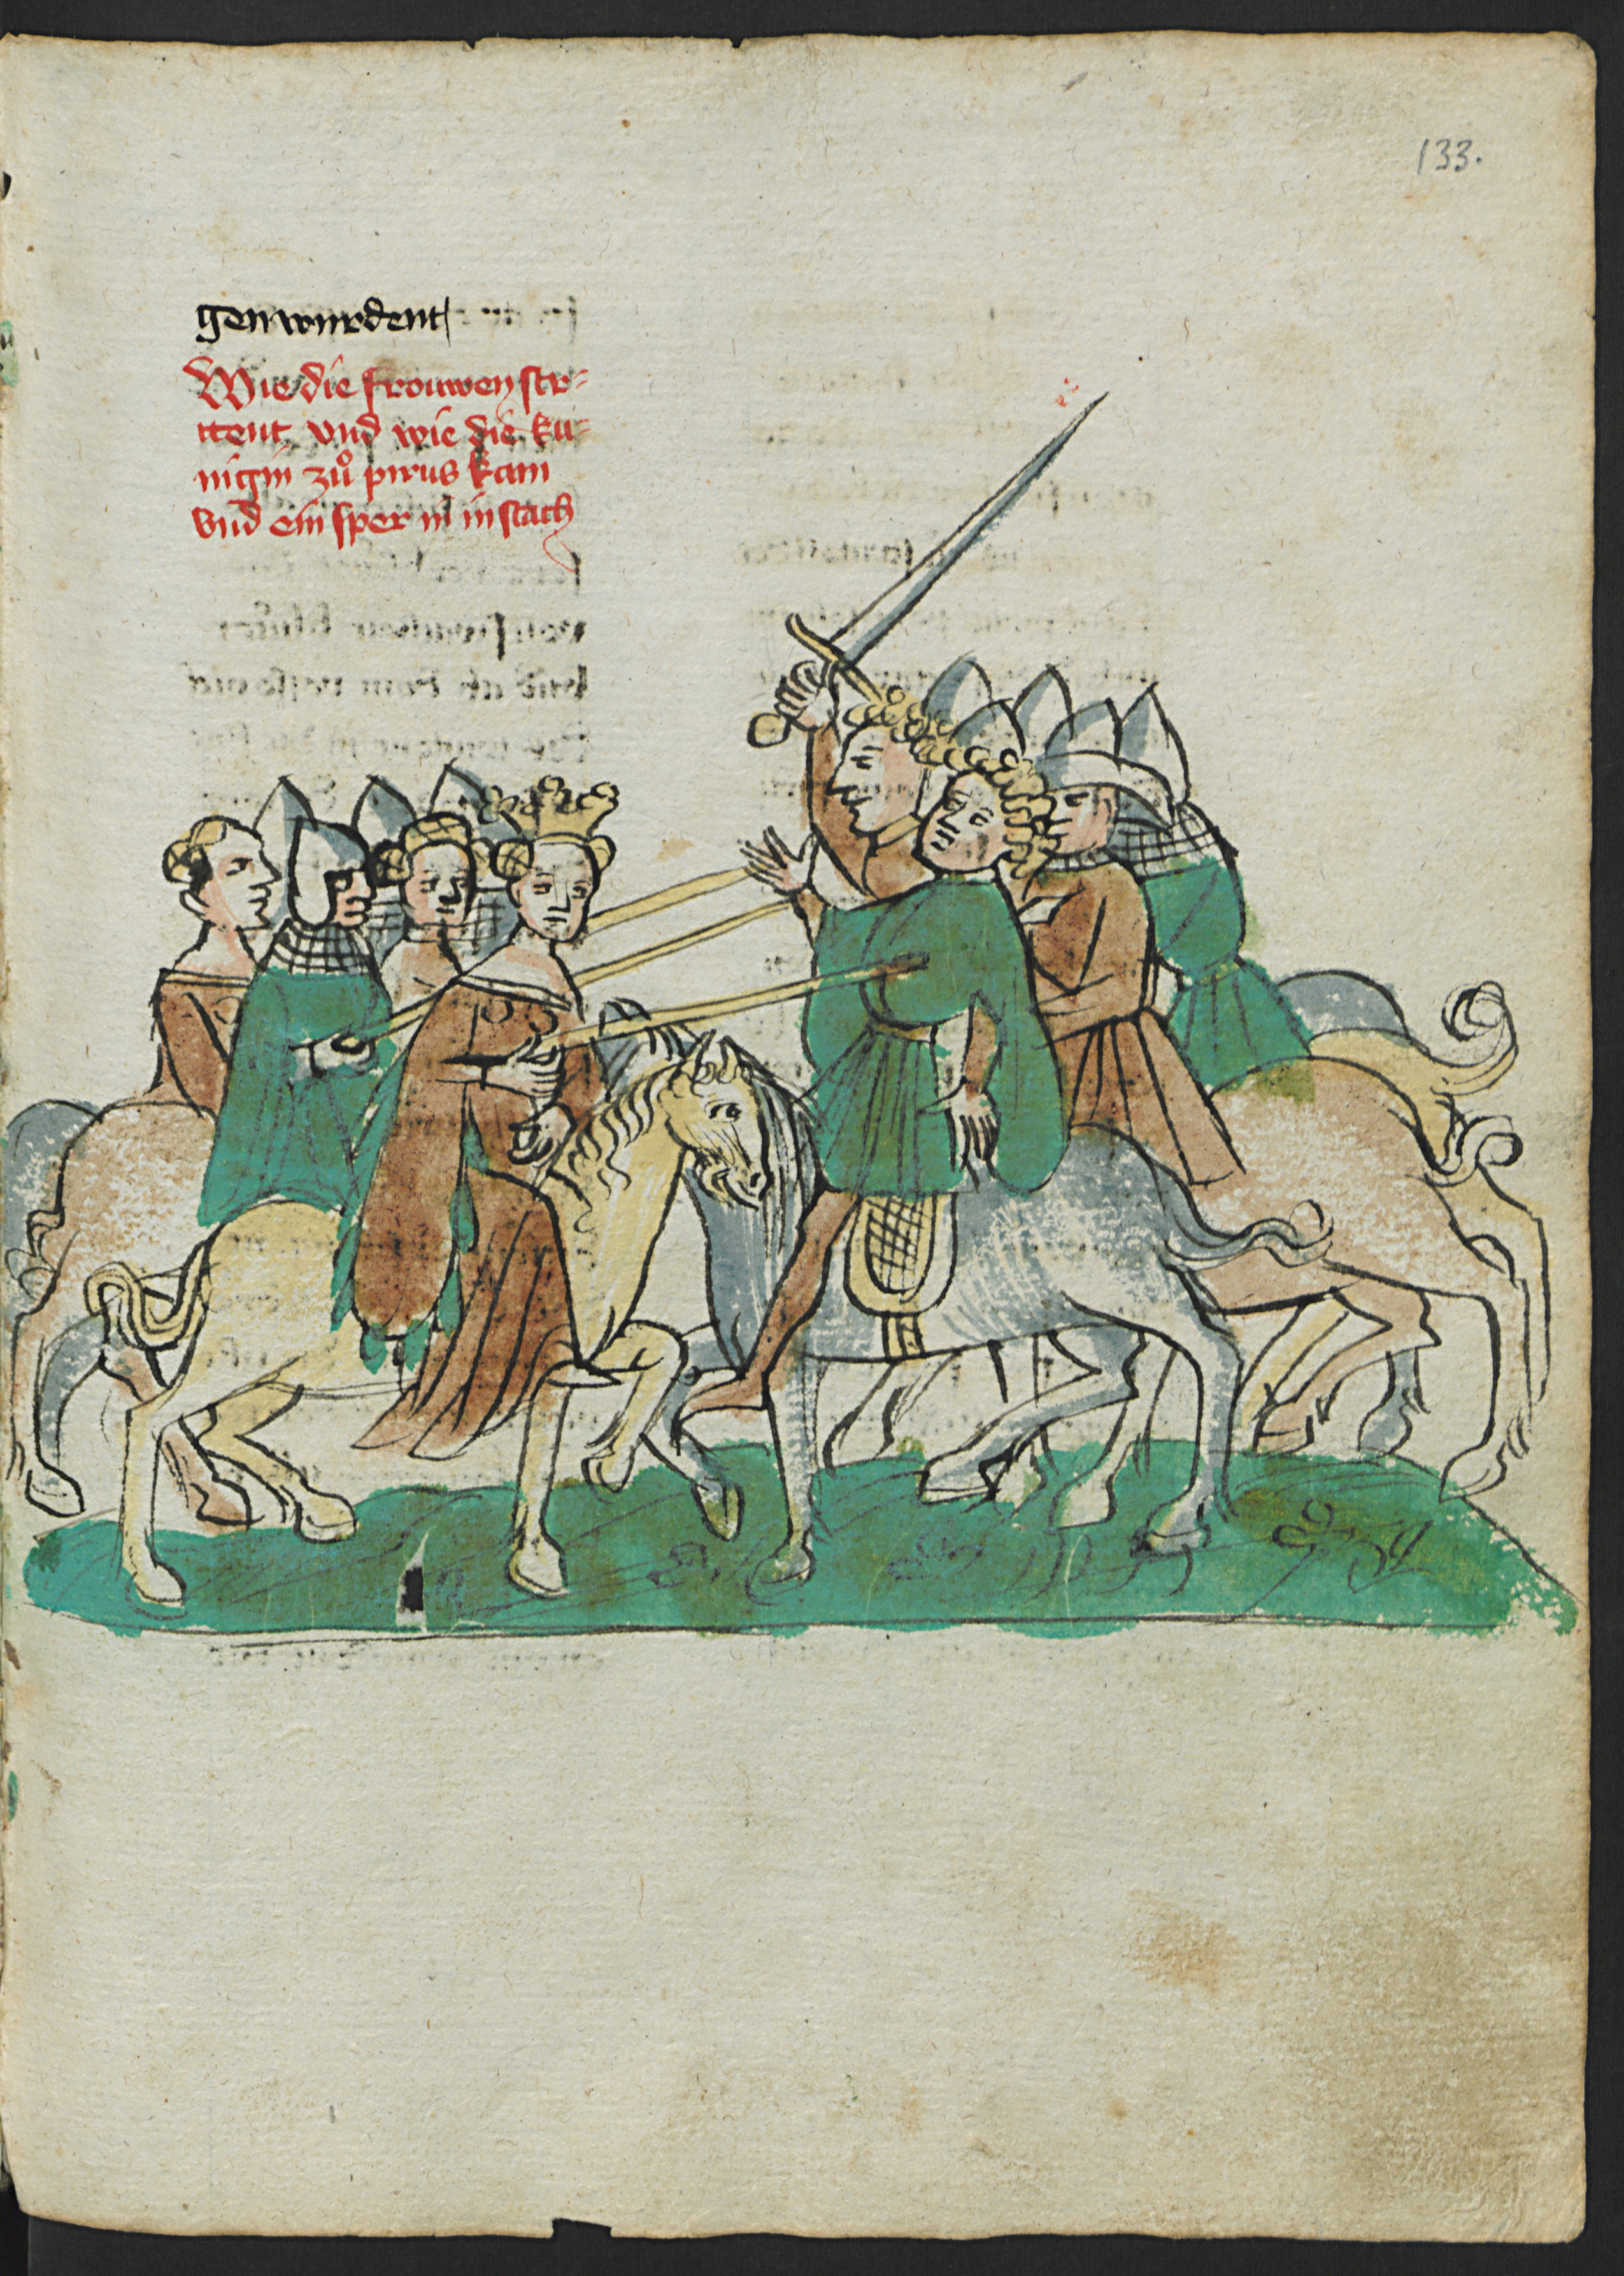 133.
gen wurdent
Wie die frouwen stri-
ttent vnd wie die ku-
nigin zuͦ pirus kam
vnd ein sper in in stach